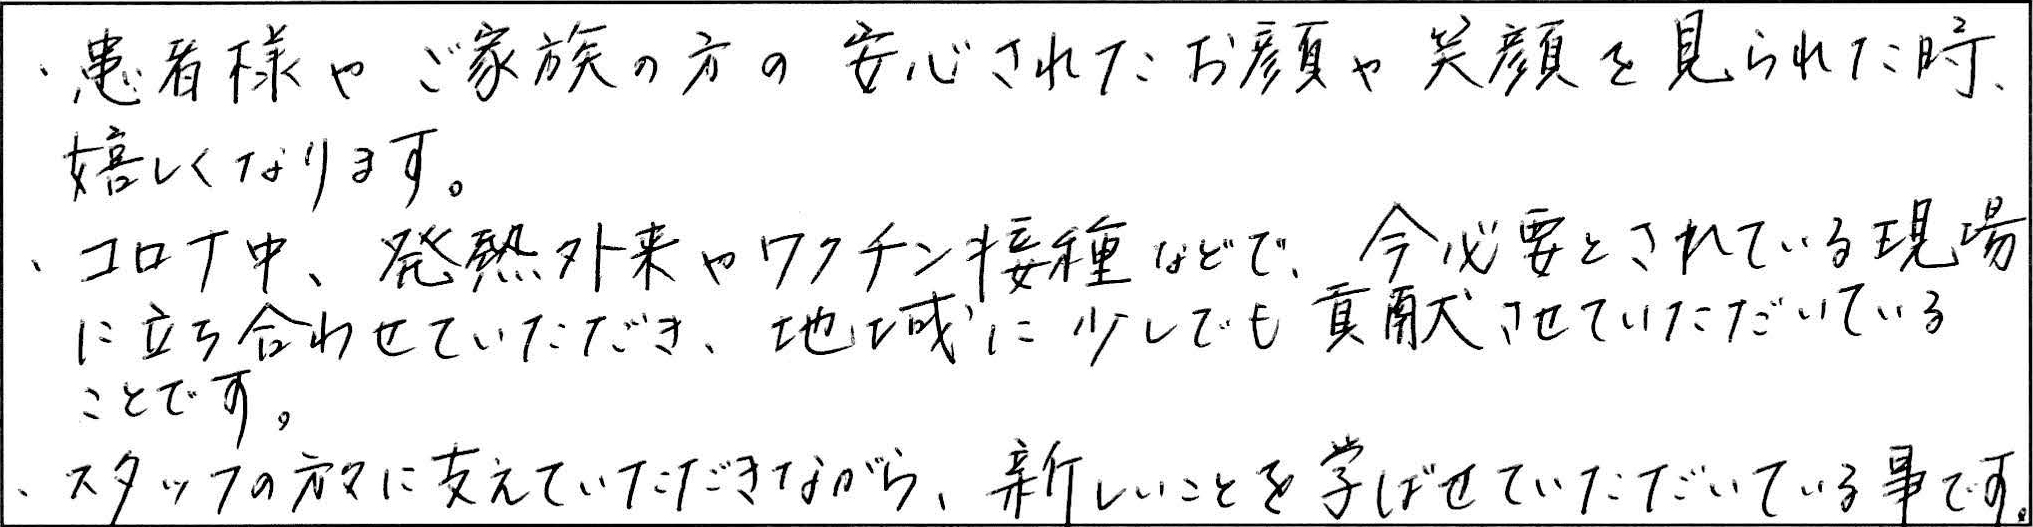 ・患者様やご家族の方の安心されたお顔や笑顔を見られた時、
嬉しくなります。
・コロナ中、発熱外来やワクチン接種などで、今必要とされている現場
に立ち合わせていただき、地域に少しでも貢献させていただいている
ことです。
・スタッフの方々に支えていただきながら、新しいことを学ばせていただいている事です。